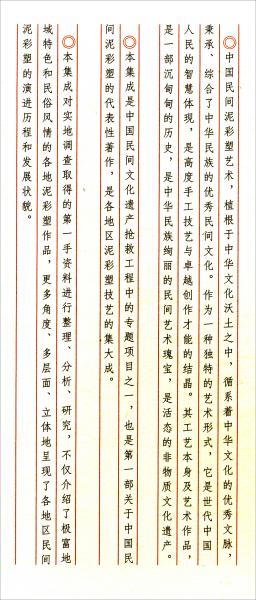 ◎中国民间泥彩塑艺术，植根于中华文化沃土之中，循系着中华文化的优秀文脉，
秉承、综合了中华民族的优秀民间文化。作为一种独特的艺术形式，它是世代中国
人民的智慧体现，是高度手工技艺与卓越创作才能的结晶。其工艺本身及艺术作品，
是一部沉甸甸的历史，是中华民族绚丽的民间艺术瑰宝，是活态的非物质文化遗产。
◎本集成是中国民间文化遗产抢救工程中的专题项目之一，也是第一部关于中国民
间泥彩塑的代表性著作，是各地区泥彩塑技艺的集大成。
◎本集成对实地调查取得的第一手资料进行整理、分析、研究，不仅介绍了极富地
域特色和民俗风情的各地泥彩塑作品，更多角度、多层面、立体地呈现了各地区民间
泥彩塑的演进历程和发展状貌。